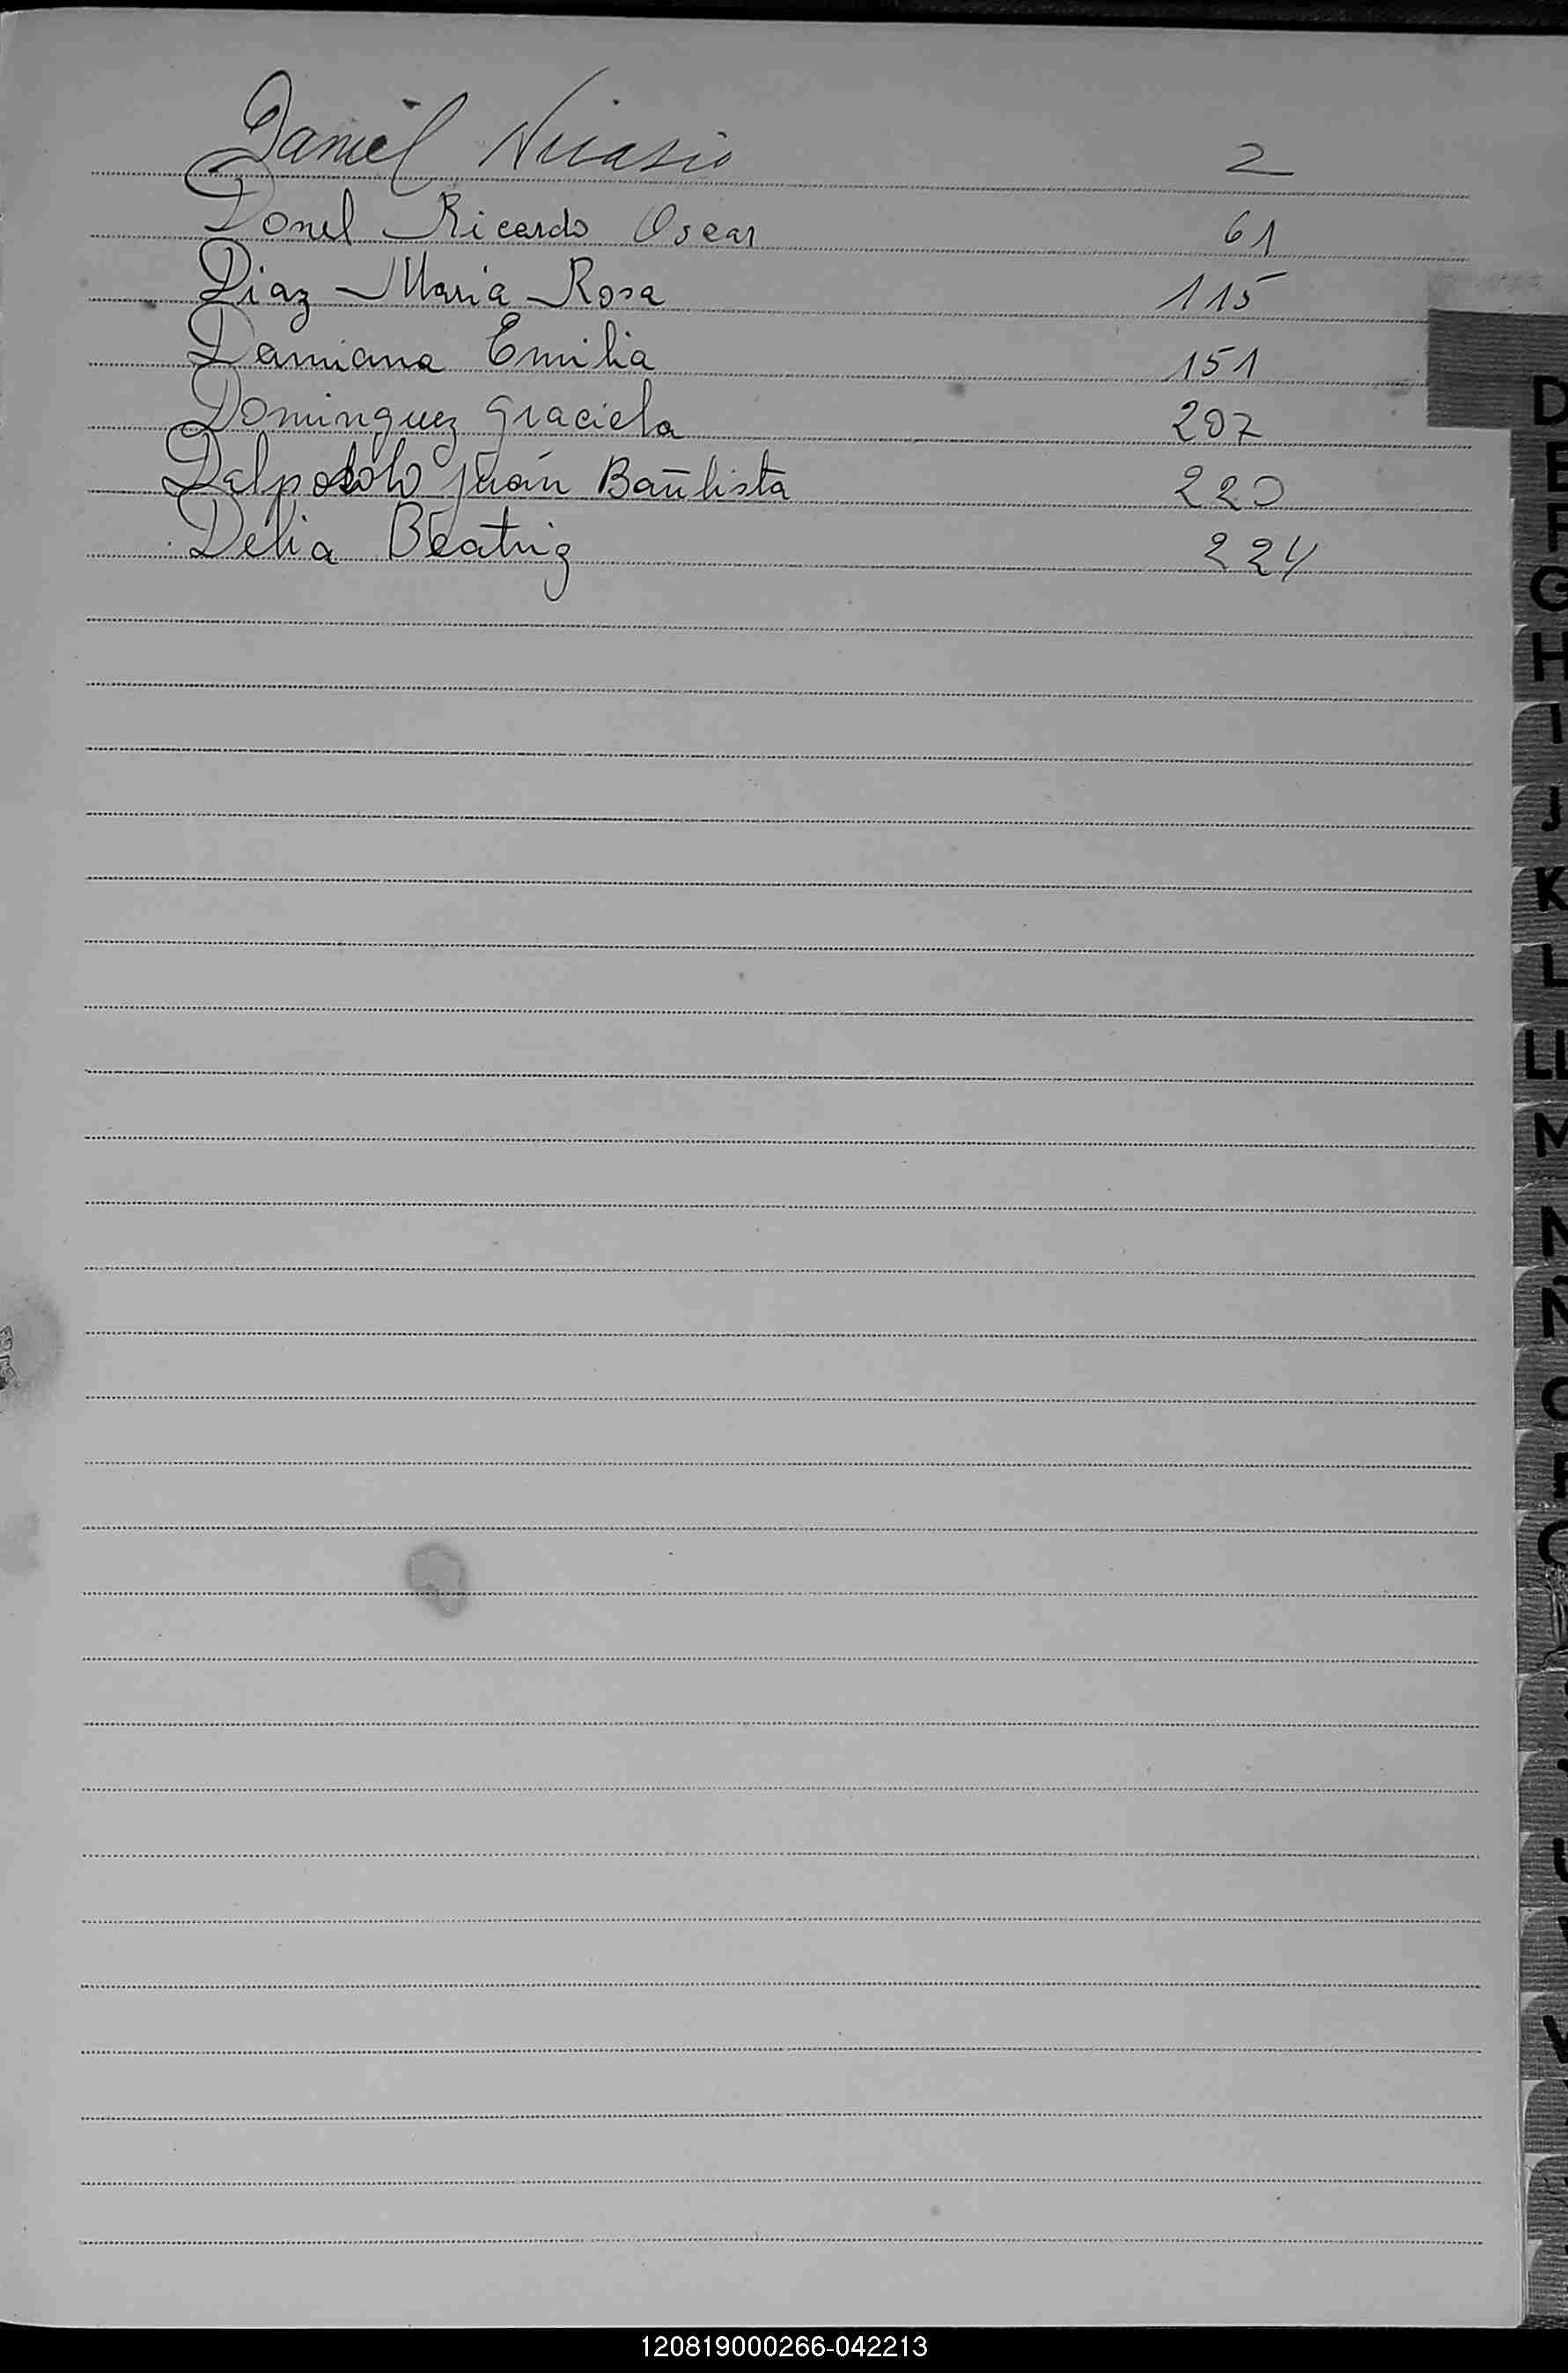 Daniel Nicasio 2
Donel Ricardo Oscar 61
Diaz Maria Rosa 115
Damiana Emilia 151
Dominguez Graciela 207
Juan Bautista 220
Delia Beatriz 224
D
E
F
G
H
I
J
K
L
LL
M
N
Ñ
O
P
Q
U
V
120819000266-042213